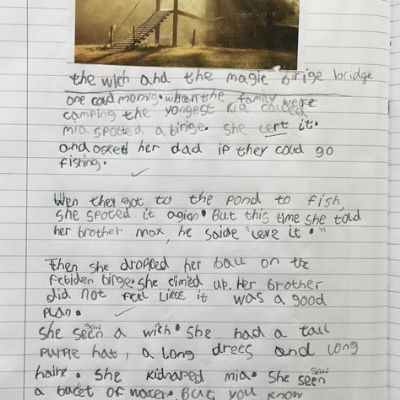 the wich and the magic birige bridge
one coud mornig. when the family were
camping the yongest kid calleed
mia spoted a birige. she left it.
and asked her dad if they coud go
fishing.
When they got to the pond to fish,
she spoted it agian. But this time she told
her brother max, he saide "leve it."
Then she dropped her ball on the
febiden birge. she climed up. Her brother
did not feel liece it was a good
plan.
She seen saw a wich. She had a tall
purple hat, a long drees and long
haire. She kidnaped mia. She seen saw
a bucet of water. But you know